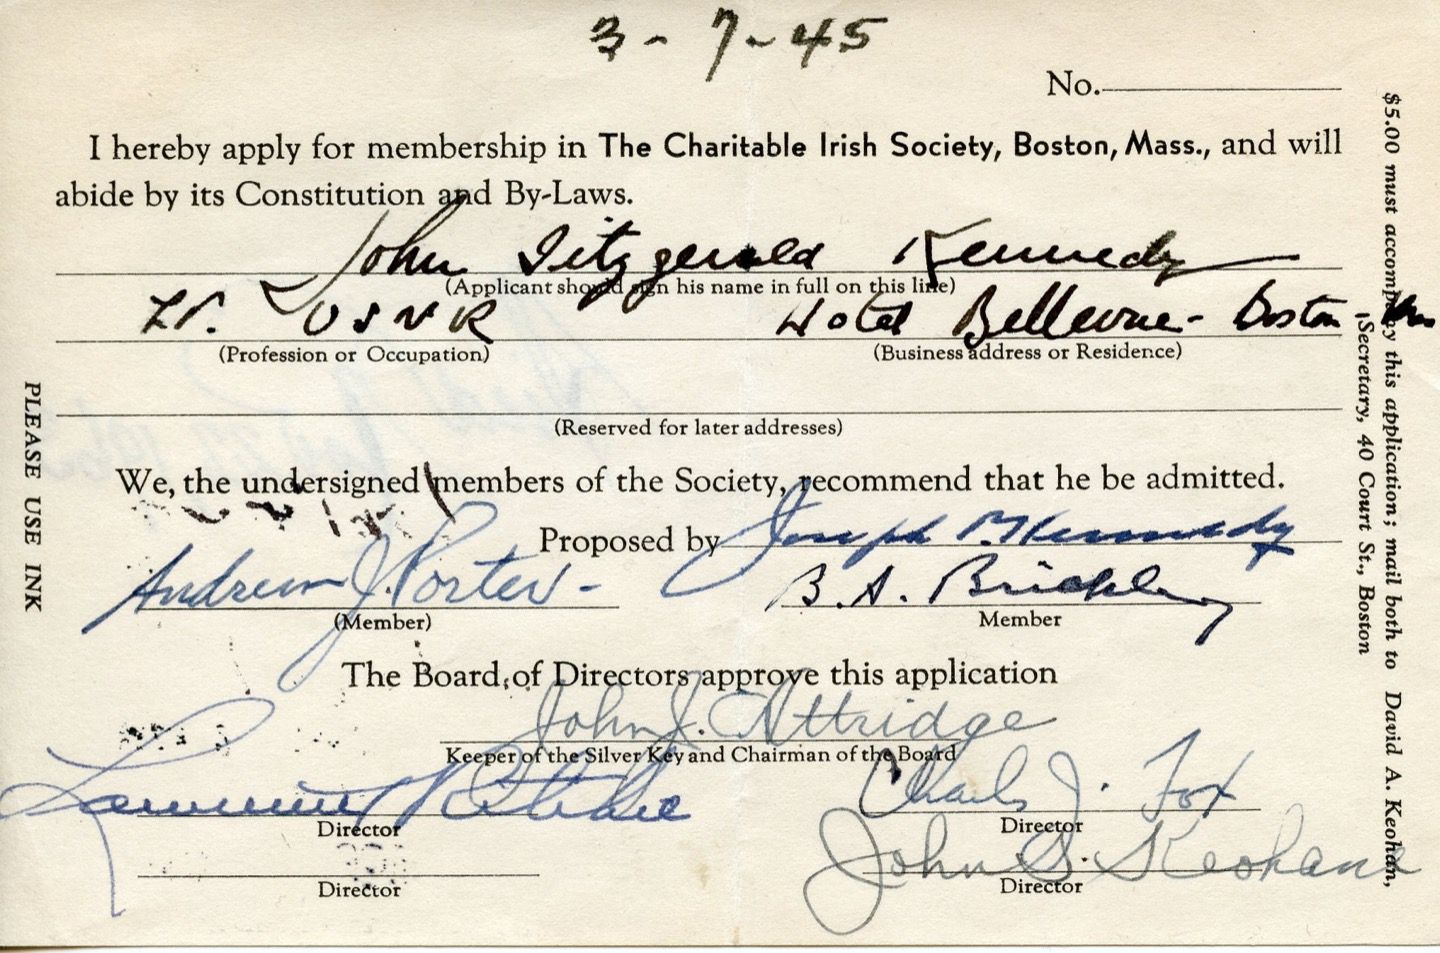 3-7-45
No.
I hereby apply for membership in The Charitable Irish Society, Boston, Mass., and will
abide by its Constitution and By-Laws.
John Fitzgerald Kennedy
(Applicant should sign his name in full on this line)
Lt. USNR Hotel Bellevue - Boston
(Profession or Occupation) (Business address or Residence)
(Reserved for later addresses)
We, the undersigned members of the Society, recommend that he be admitted.
Proposed by Joseph P. Kennedy
Andrew J. Porter - B. A. Brickley
(Member) Member
The Board of Directors approve this application
John J. Attridge
Keeper of the Silver Key and Chairman of the Board
Charles J. Fox
Director Director
John S. Keohane
Director Director
PLEASE USE INK
$5.00 must accompany this application; mail both to David A. Keohan,
Secretary, 40 Court St., Boston